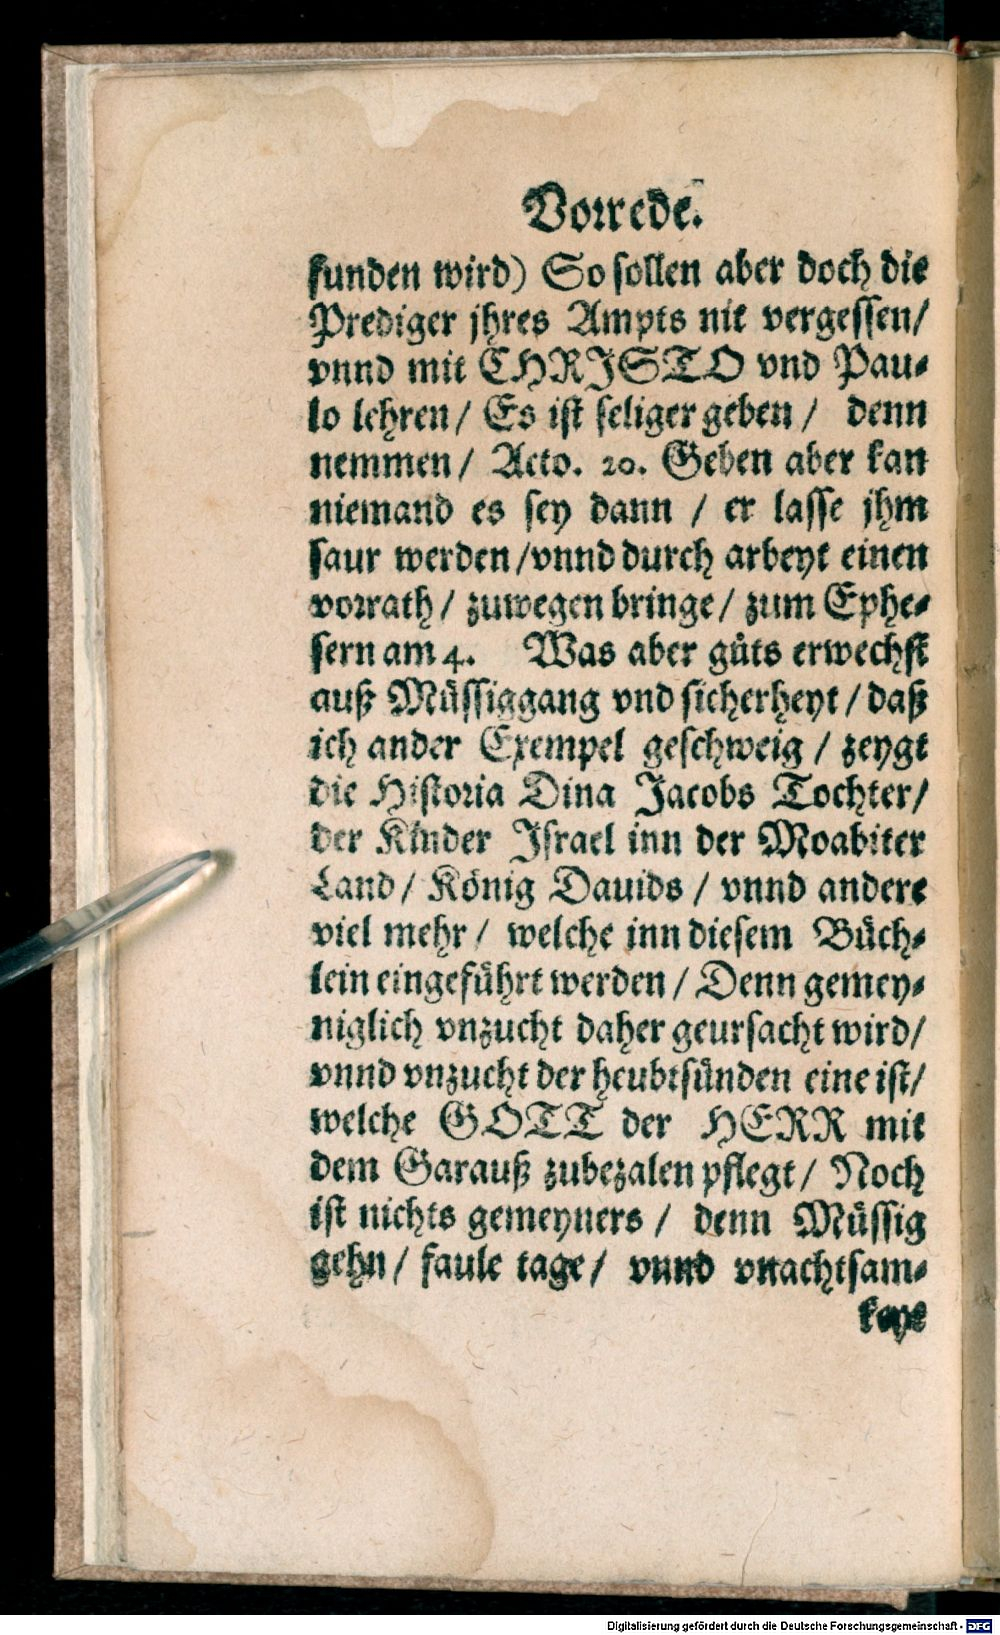 Vorrede.
funden wird) So sollen aber doch die
Prediger jhres Ampts nit vergessen/
vnnd mit CHRISTO vnd Pau-
lo lehren/ Es ist seliger geben/ denn
nemmen/ Acto. 20. Geben aber kan
niemand es sey dann / er lasse jhm
saur werden/vnnd durch arbeyt einen
vorrath/ zuwegen bringe/ zum Ephe-
sern am 4. Was aber gůts erwechst
auß Müssiggang vnd sicherheyt/ daß
ich ander Exempel geschweig / zeygt
die Historia Dina Jacobs Tochter/
der Kinder Israel inn der Moabiter
Land/ König Dauids / vnnd andere
viel mehr/ welche inn diesem Büch-
lein eingeführt werden/ Denn gemey-
niglich vnzucht daher geursacht wird/
vnnd vnzucht der heubtsünden eine ist/
welche GOTT der HERR mit
dem Garauß zubezalen pflegt/ Noch
ist nichts gemeyners / denn Müssig
gehn/ faule tage/ vnnd vnachtsam-
keyt
Digitalisierung gefördert durch die Deutsche Forschungsgemeinschaft - DFG